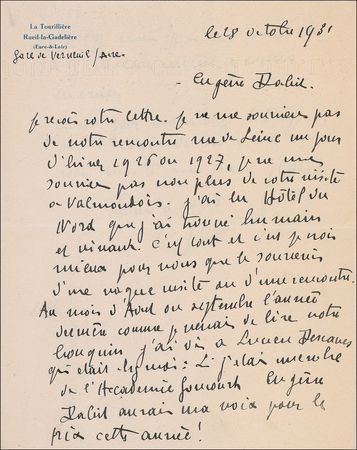 La Tourillière
Rueil-la-Gadelière
(Eure-&-Loir)
Gare de Verneuil/Avre.
le 8 octobre 1931
Eugène Dabit.
je reçois votre lettre. je ne me souviens pas
de notre rencontre rue de Seine un jour
d'hiver 1926 ou 1927, je ne me
souviens pas non plus de votre visite
à Valmondois. j'ai lu Hôtel du
Nord que j'ai trouvé humain
et vivant. C'est tout et c'est je crois
mieux pour vous que le souvenir
d'une vague visite ou d'une rencontre.
Au mois d'Aout ou septembre l'année
dernière comme je venais de lire votre
bouquin j'ai dis à Lucien Descaves
qui était chez moi: Si j'étais membre
de l'Accademie Goncourt Eugène
Dabit aurais ma voix pour le
prix cette année!